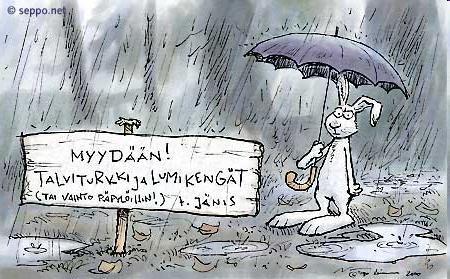 © seppo.net
MYYDÄÄN!
TALVITURKKI ja LUMIKENGÄT
(TAI VAIHTO RÄPYLÖIHIN!) T. JÄNIS